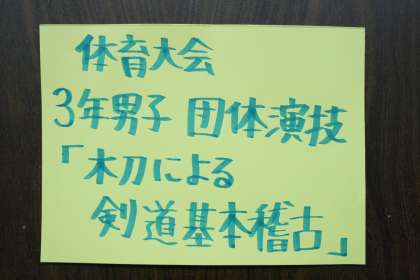 体育大会
3年男子 団体演技
「木刀による
剣道基本稽古」